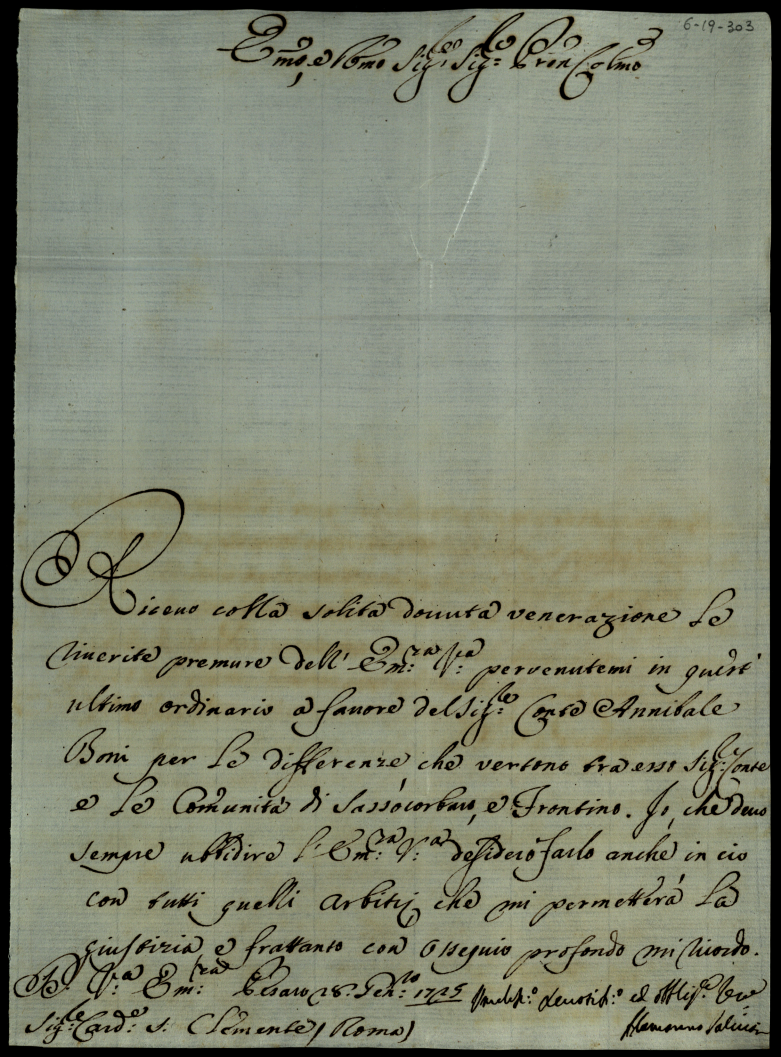 6-19-303
Emo, e Rmo Sig:re Sig:re Pron Colmo
Riceuo colla solita douuta venerazione le
riuerite premure dell' Em:za V:ra peruenutemi in quest'
ultimo ordinario a fauore del Sig:re Conte Annibale
Boni per le differenze che vertono tra esso Sig:r Conte
e le Comunità di Sassocorbaro, e Frontino. Io, che deuo
sempre ubbidire l'Em:za V:ra desidero farlo anche in ciò
con tutti quelli arbitrj che mi permetterà la
giustizia e frattanto con ossequio profondo mi ricordo.
Di V:ra Em:za Pesaro 28: Gen:ro 1725 deuotis:o ed obblig:o
Sig:re Card:e S. Clemente (Roma)